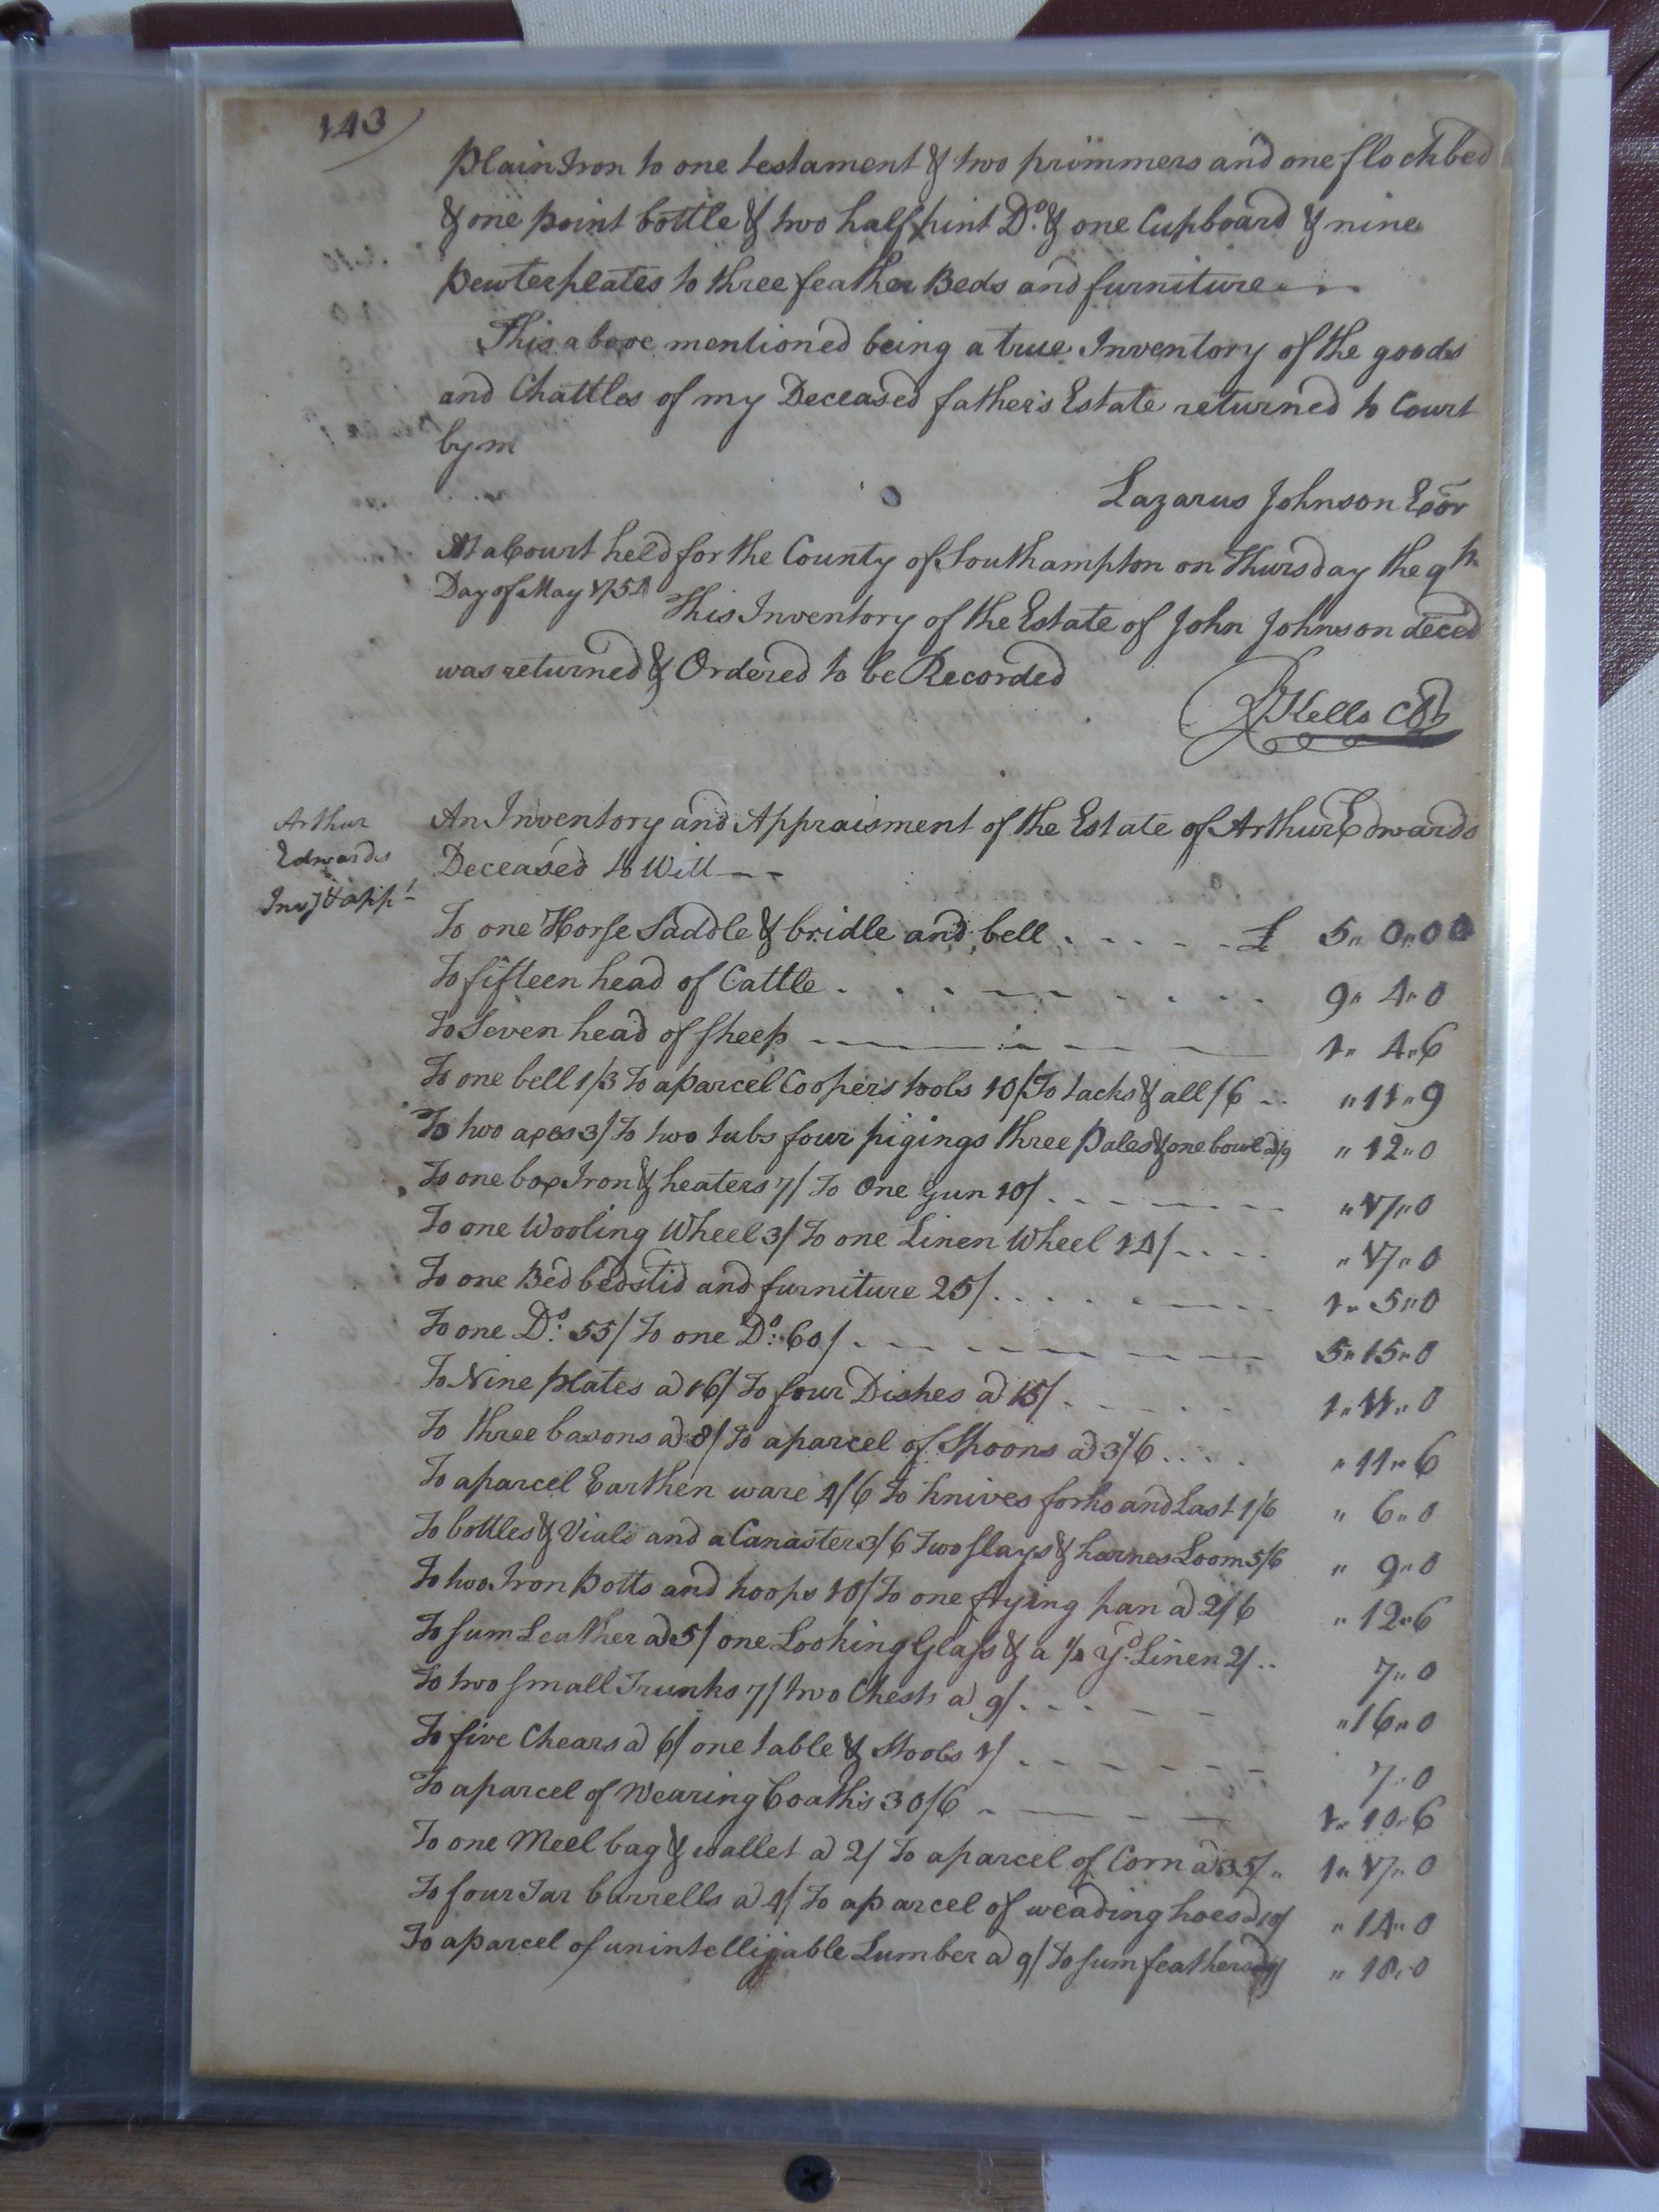 143
plain Iron to one testament & two primmers and one flockbed
& one point bottle & two half pint Do. & one Cupboard & nine
pewter plates to three feather Beds and furniture
This above mentioned being a true Inventory of the goods
and Chattles of my Deceased father's Estate returned to Court
by m
Lazarus Johnson Exor
At a Court held for the County of Southampton on Thursday the 9th
Day of May 1751
This Inventory of the Estate of John Johnson deced
was returned & Ordered to be Recorded
Kello
Arthur
Edwards
Invy & appt
An Inventory and Appraisment of the Estate of Arthur Edwards
Deceased to Witt
To one Horse Saddle & bridle and bell £ 5" 0" 0
To fifteen head of Cattle 9" 4" 0
To Seven head of Sheep 1" 4" 6
To one bell 1/3 To a parcel Coopers tools 10/ To tacks & all /6 " 11" 9
To two axes 3/ To two tubs four pigings three pales & one bowl a 9/ " 12" 0
To one box Iron & heaters 7/ To One Gun 10/ " 17" 0
To one Wooling Wheel 3/ To one Linen Wheel 14/ " 17" 0
To one Bed bedstid and furniture 25/ 1" 5" 0
To one Do. 55/ To one Do. 60/ 5" 15" 0
To Nine plates a 16/ To four Dishes a 15/ 1" 11" 0
To three basons a 8/ To a parcel of Spoons a 3/6 " 11" 6
To a parcel Earthen ware 4/6 To knives forks and Last 1/6 " 6" 0
To bottles & Vials and a Canaster 3/6 Two Slays & harnes Loom 5/6 " 9" 0
To two Iron Potts and hoops 10/ To one frying pan a 2/6 " 12" 6
To sum Leather a 5/ one Looking Glass & a 1/2 Yd. Linen 2/ 7" 0
To two small Trunks 7/ two Chests a 9/ " 16" 0
To five Chears a 6/ one table & Stools 1/ 7" 0
To a parcel of Wearing Coaths 30/6 1" 10" 6
To one Meel bag & wallet a 2/ To a parcel of Corn a 35/ 1" 17" 0
To four Tar barrells a 4/ To a parcel of weading hoes a 10/ " 14" 0
To a parcel of unintelligable Lumber a 9/ To sum feathers a 9/ " 18" 0